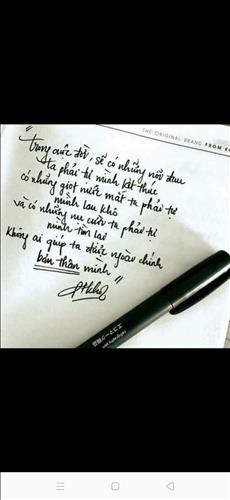 THE ORIGINAL BRAND FROM
"trong cuộc đời, sẽ có những nỗi đau
ta phải tự mình kết thúc
có những giọt nước mắt ta phải tự
mình lau khô
và có những nụ cười ta phải tự
mình tìm lại
không ai giúp ta được ngoài chính
bản thân mình"